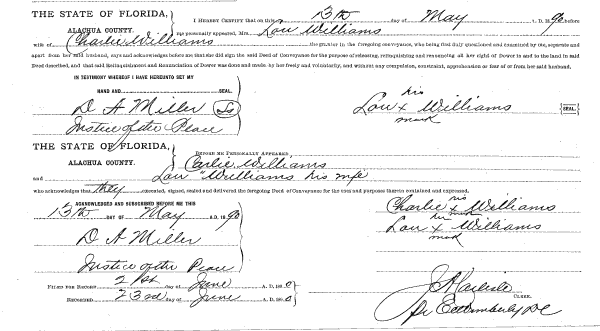 THE STATE OF FLORIDA,
ALACHUA COUNTY.
I HEREBY CERTIFY that on this 13th day of May A. D. 1890 before
me personally appeared, Mrs. Lou Williams
wife of Charlie Williams the grantor in the foregoing conveyance, who being first duly questioned and examined by me, separate and
apart from her said husband, says and acknowledges before me that she did sign the said Deed of Conveyance for the purpose of releasing, relinquishing and renouncing all her right of Dower in and to the land in said
Deed described, and that said Relinquishment and Renunciation of Dower was done and made by her freely and voluntarily, and without any compulsion, constraint, apprehension or fear of or from her said husband.
IN TESTIMONY WHEREOF I HAVE HEREUNTO SET MY
HAND AND SEAL.
D A Miller
Justice of the Peace
his
Lou x Williams SEAL
mark
THE STATE OF FLORIDA,
ALACHUA COUNTY.
BEFORE ME PERSONALLY APPEARED
Carlie Williams
and Lou Williams his wife
who acknowledges that they executed, signed, sealed and delivered the foregoing Deed of Conveyance for the uses and purposes therein contained and expressed.
ACKNOWLEDGED AND SUBSCRIBED BEFORE ME THIS
13th DAY OF May A. D. 1890
D A Miller
Justice of the Peace
his
Charlie x Williams
mark
her
Lou x Williams
mark
FILED FOR RECORD 21st day of June A. D. 1890
RECORDED 23rd day of June A. D. 1890
CLERK.